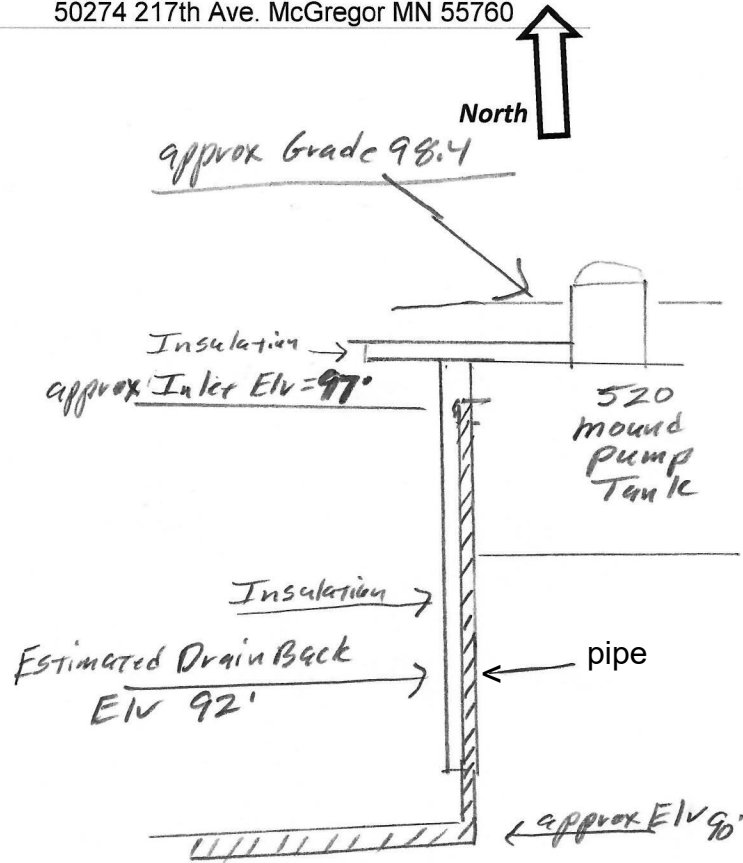 50274 217th Ave. McGregor MN 55760
North
approx Grade 98.4
Insulation
approx Inlet Elv = 97'
520
mound
pump
Tank
Insulation
Estimated Drain Back
Elv 92'
pipe
approx Elv 90'